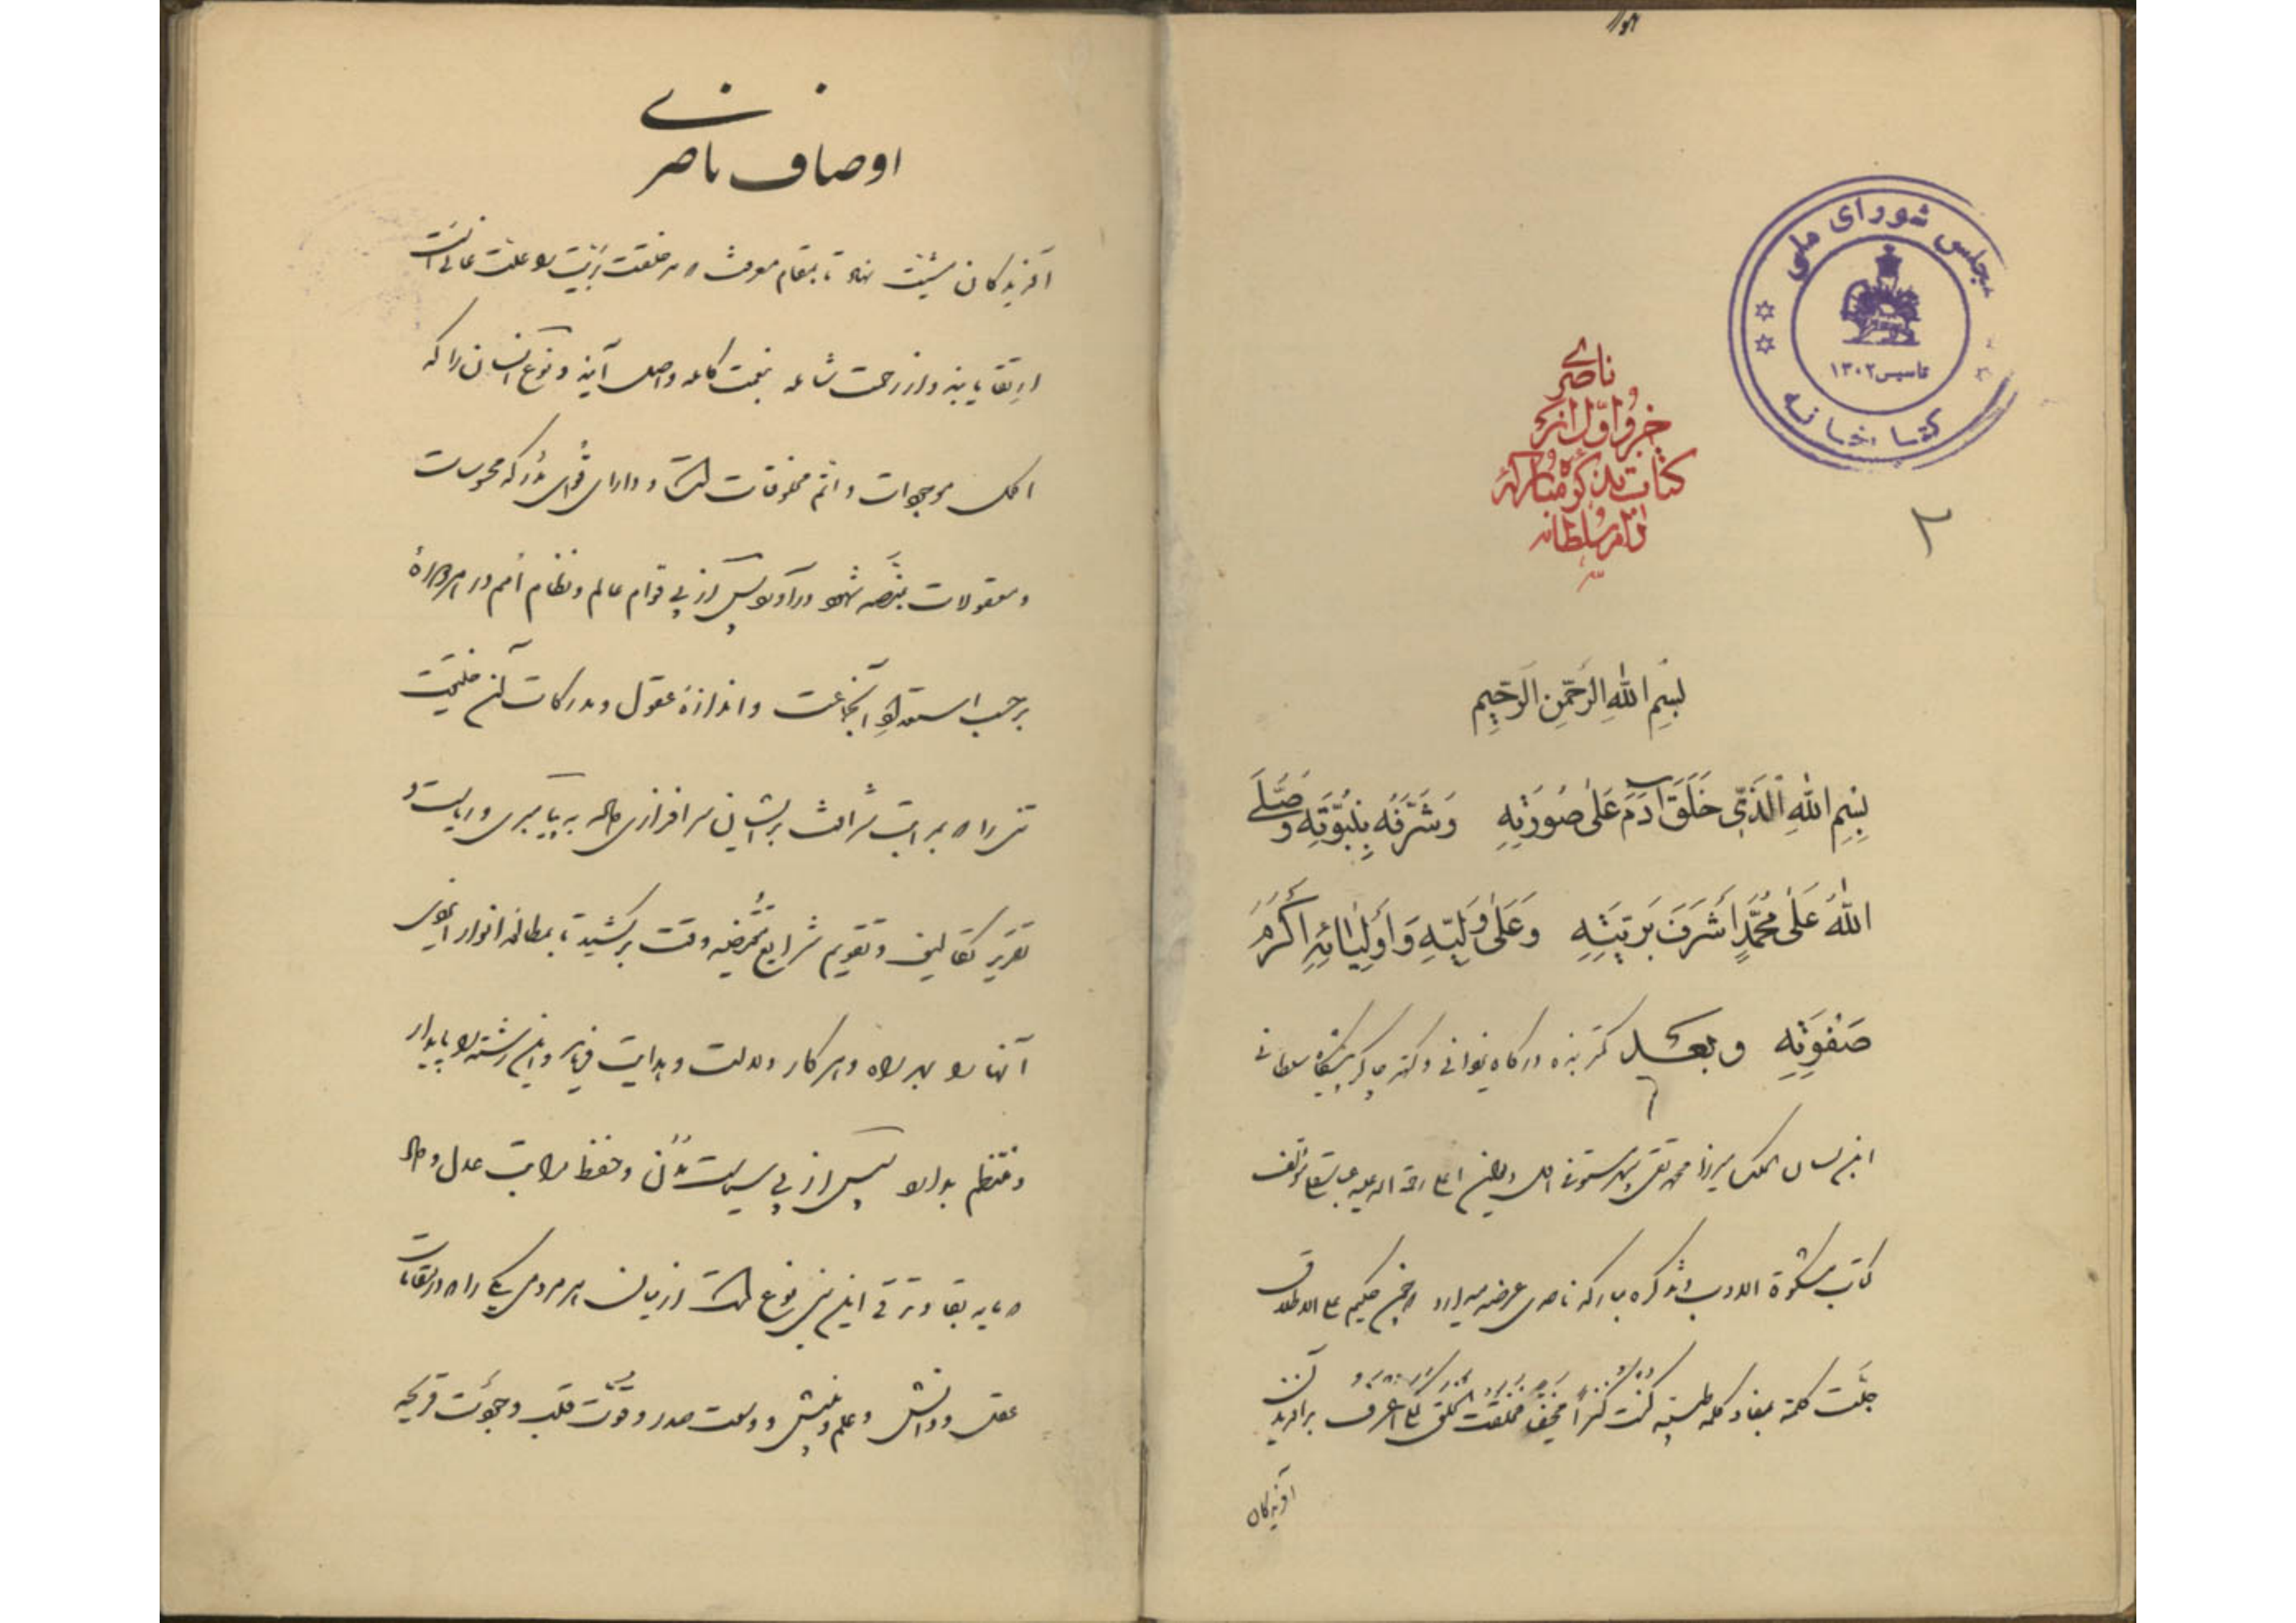 مجلس شورای ملی
تاسیس ۱۳۰۲
کتابخانه
۲
ناصری
جزو اول از
کتاب تذکره مبارکه
بسم الله الرحمن الرحیم
بِسْمِ اللهِ الَّذی خَلَقَ آدَمَ عَلی صُورَتِهِ وَشَرَّفَهُ بِنُبُوَّتِهِ وَصَلَّی
اللهُ عَلی مُحَمَّدٍ اَشْرَفِ بَرِیَّتِهِ وَعَلی وَلِیِّهِ وَاَوْلِیائِهِ اَکْرَمِ
صَفْوَتِهِ وبعد کمتر بنده درگاه یزدانی وکهتر چاکر پیشگاه سلطانی
ابن لسان الملک میرزا محمدتقی سپهر مستوفی اول دیوان اعلی رحمة الله علیه عباسقلی مؤلف
کتاب مشکوة الادب وتذکره مبارکه ناصری عرضه میدارد چون حکیم علی الاطلاق
جلّت کلمته بمفاد کلمه طیبه کنت کنزاً مخفیاً فخلقت الخلق لکی اعرف
آفریدگان
اوصاف ناصری
آفریدگان نهاد تا بمقام معرفت که خلقت را علت غائی است
ارتقا یابند واز رحمت شامله بنعمت کامله واصل آیند ونوع انسان را که
اکمل موجودات واتمّ مخلوقات است ودارای قوای مُدرکه محسوسات
ومعقولات بمنصّه شهود درآورد پس از پی قوام عالم ونظام اُمم در هر دوره
برحسب استعداد آنجماعت واندازهٔ عقول ومدرکات آن
تنی را که بمراتب شرافت برایشان سرافرازی داشت به پیامبری وریاست و
تقریر تکالیف وتقویم شرایع وقت برکشید تا بمطالعه انوار ایزدی
آنها را بهر راه وهر کار دلالت وهدایت فرماید واین رشته را پایدار
ومنتظم بدارد پس از پی سیاست مُدُن وحفظ مراتب عدل وداد
که مایه بقا وترقی این نوع است از میان هر مردمی یکی را که در مقامات
عقل ودانش وعلم وبینش ووسعت صدر وقوّت قلب وجودت قریحه